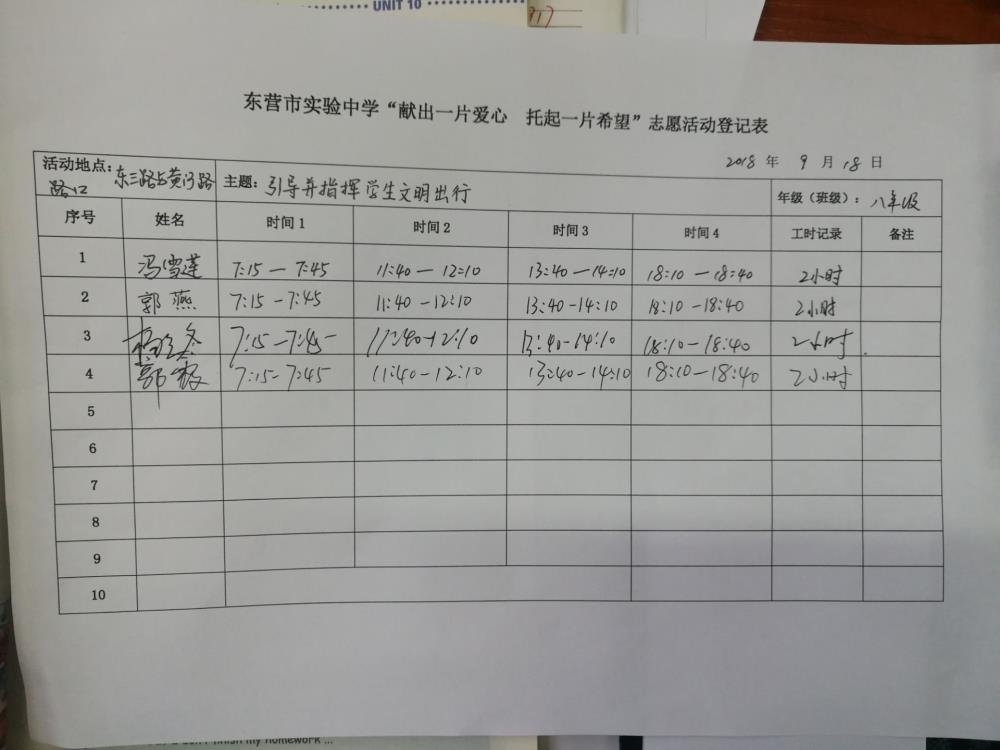 UNIT 10
东营市实验中学“献出一片爱心 托起一片希望”志愿活动登记表
2018 年 9 月 18 日
活动地点: 东三路与黄河路路口 主题: 引导并指挥学生文明出行 年级(班级): 八年级
序号 姓名 时间1 时间2 时间3 时间4 工时记录 备注
1 冯雪莲 7:15—7:45 11:40—12:10 13:40—14:10 18:10—18:40 2小时
2 郭燕 7:15-7:45 11:40-12:10 13:40-14:10 18:10-18:40 2小时
3 7:15-7:45 11:40-12:10 13:40-14:10 18:10-18:40 2小时
4 郭 7:15-7:45 11:40-12:10 13:40-14:10 18:10-18:40 2小时
5
6
7
8
9
10
finish my homework ...